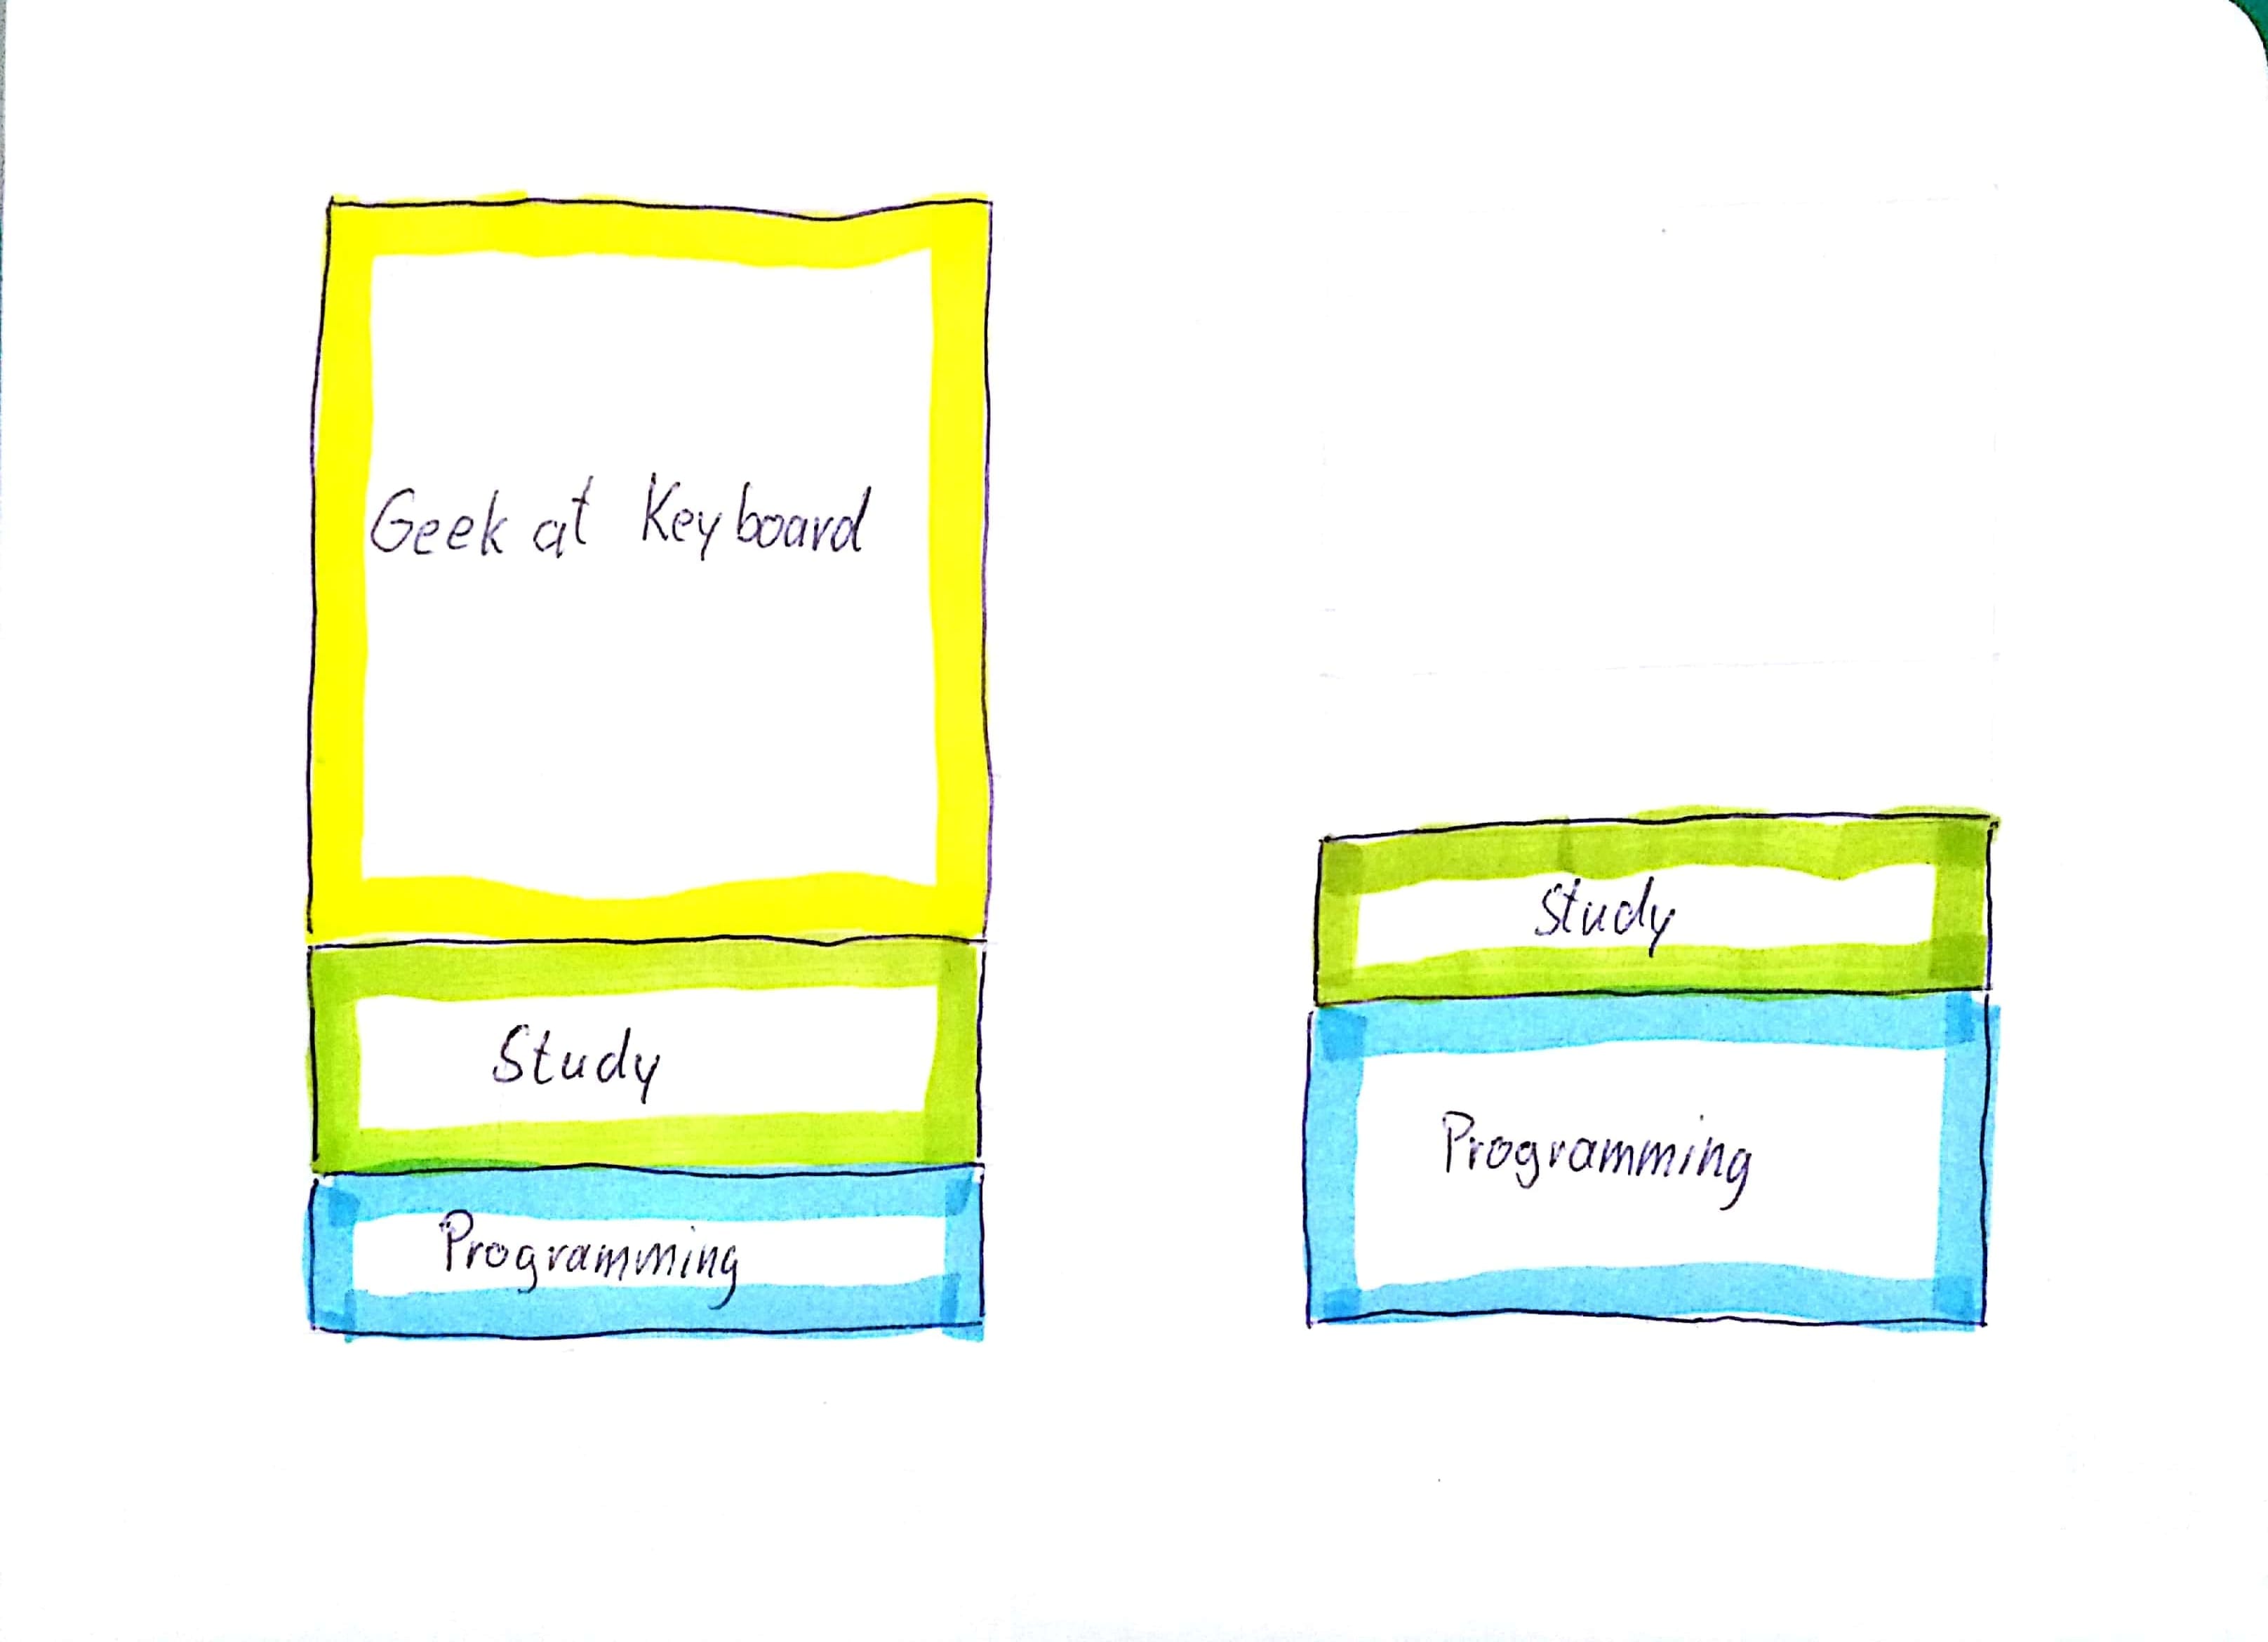 Geek at Keyboard
Study
Programming
Study
Programming